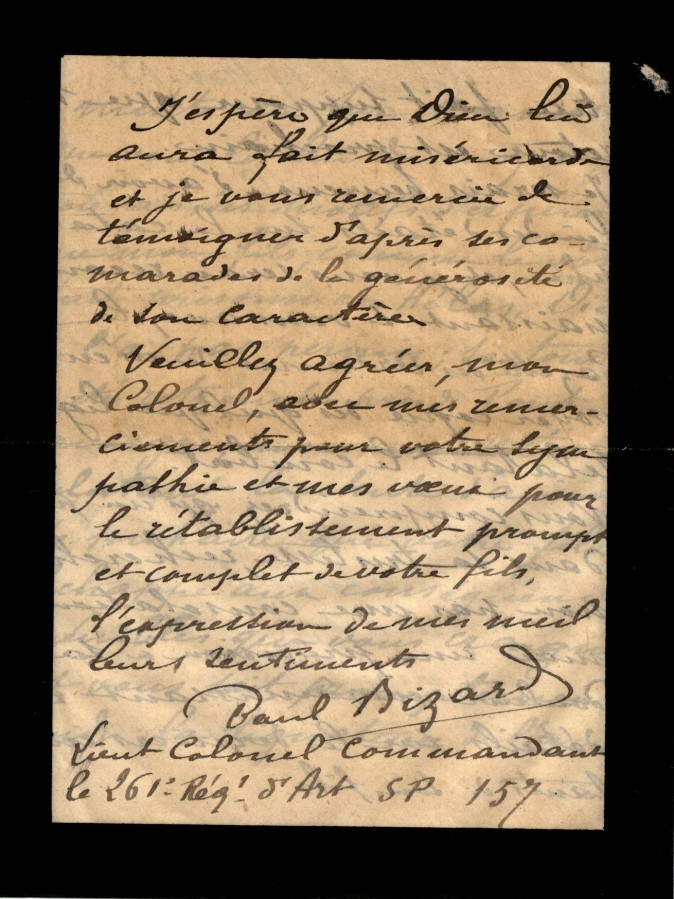 J'espère que Dieu lui
aura fait miséricorde
et je vous remercie de
témoigner d'après ses ca-
marades de la générosité
de son caractère
Veuillez agréer, mon
Colonel, avec mes remer-
ciements pour votre sym
pathie et mes vœux pour
le rétablissement prompt
et complet de votre fils,
l'expression de mes meil
leurs sentiments
Paul Bizard
Lieut Colonel Commandant
le 261e Régt d'Art SP 157